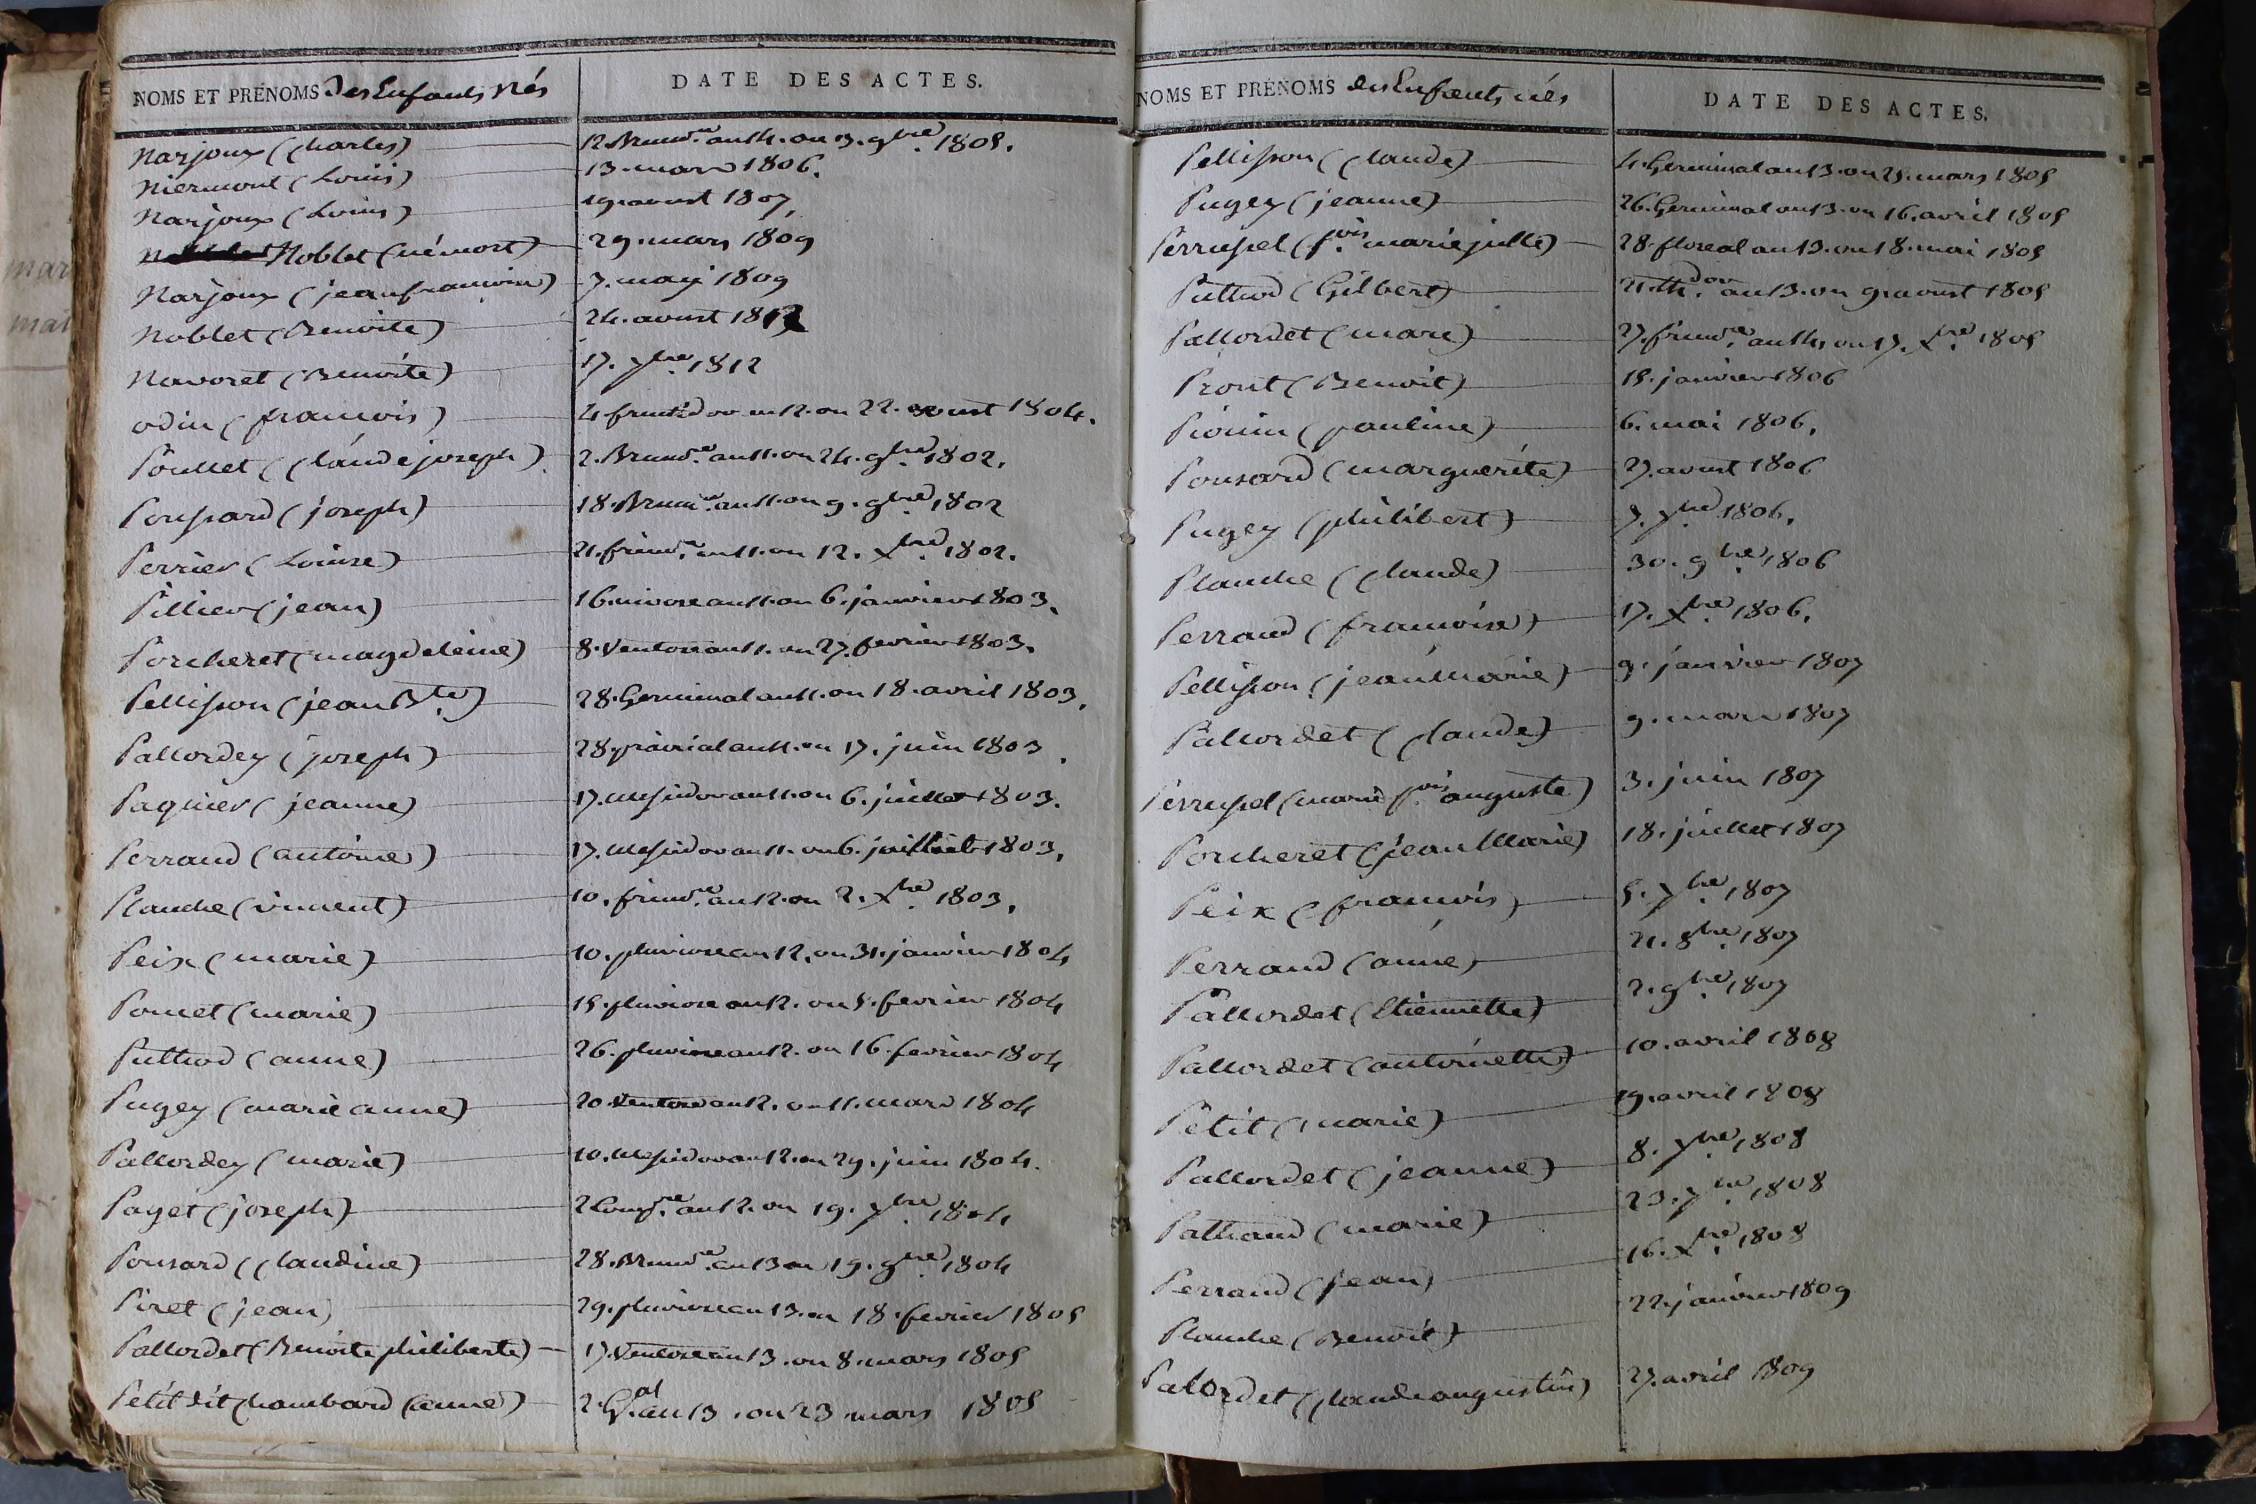 NOMS ET PRÉNOMS des Enfants Nés
DATE DES ACTES.
Narjoux (Charles) 12. Brum.re an 14. ou 3. 9bre 1805.
Niermont (Louis) 13. mars 1806.
Narjoux (Louis) 19. aoust 1807.
Noblet (né mort) 29. mars 1809
Narjoux (jean francois) 7. may 1809
Noblet (Benoite) 24. aoust 1812
Navoret (Benoite) 17. 7bre 1812
odin (francois) 4 fructidor an 12. ou 22. aoust 1804.
Poullet (Claude joseph) 2. Brum.re an 11. ou 24. 8bre 1802.
Poussard (joseph) 18. Brum.re an 11. ou 9. 9bre 1802
Perrier (Louise) 21. frim.re an 11. ou 12. Xbre 1802.
Pillier (jean) 16. nivose an 11. ou 6. janvier 1803.
Porcheret (magdeleine) 8. Ventose an 11. ou 27. fevrier 1803.
Pellisson (jean B.te) 28. Germinal an 11. ou 18. avril 1803.
Pallordey (joseph) 28. prairial an 11. ou 17. juin 1803.
Paquier (jeanne) 17. Messidor an 11. ou 6. juillet 1803.
Perraud (antoine) 17. Messidor an 11. ou 6. juillet 1803.
Planche (vincent) 10. frim.re an 12. ou 2. Xbre 1803.
Peix (marie) 10. pluviose an 12. ou 31. janvier 1804
Pornet (marie) 15. pluviose an 12. ou 5. fevrier 1804
Puthod (anne) 26. pluviose an 12. ou 16. fevrier 1804
Pugey (marie anne) 20 Ventose an 12. ou 11. mars 1804
Pallordey (marie) 10. Messidor an 12. ou 29. juin 1804.
Paget (joseph) 2 Comp.re an 12. ou 19. 7bre 1804
Ponsard (Claudine) 28. Brum.re an 13 ou 19. 9bre 1804
Piret (jean) 29. pluviose an 13. ou 18. fevrier 1805
Pallordet (Benoite philiberte) 17. Ventose an 13. ou 8. mars 1805
Petit dit Chambard (anne) 2. G.al an 13. ou 23 mars 1805
NOMS ET PRÉNOMS des Enfants nés
DATE DES ACTES.
Pellisson (Claude) 4. Germinal an 13. ou 25. mars 1805
Pugey (jeanne) 26. Germinal an 13. ou 16. avril 1805
Perrussel (f.ois marie julle) 28. floreal an 13. ou 18. mai 1805
Puthod (Gilbert) 21. th.dor an 13. ou 9. aoust 1805
Pallordet (marie) 27. frim.re an 14. ou 17. Xbre 1805
Prout (Benoit) 15. janvier 1806
Pionin (pauline) 6. mai 1806.
Ponsard (marguerite) 27. aoust 1806
Pugey (philibert) 7. 7bre 1806.
Planche (Claude) 30. 9bre 1806
Perraud (francoise) 17. Xbre 1806.
Pellisson (jean Marie) 9. janvier 1807
Pallordet (Claude) 9. mars 1807
Perrussel (marie f.ois auguste) 3. juin 1807
Porcheret (jean Marie) 18. juillet 1807
Peix (francois) 5. 7bre 1807
Perraud (anne) 21. 8bre 1807
Pallordet (Etiennette) 2. 9bre 1807
Pallordet (antoinette) 10. avril 1808
Petit (marie) 19. avril 1808
Pallordet (jeanne) 8. 7bre 1808
Pathaud (marie) 23. 7bre 1808
Perraud (jean) 16. Xbre 1808
Planche (Benoit) 22. janvier 1809
Palordet (Claude augustin) 27. avril 1809